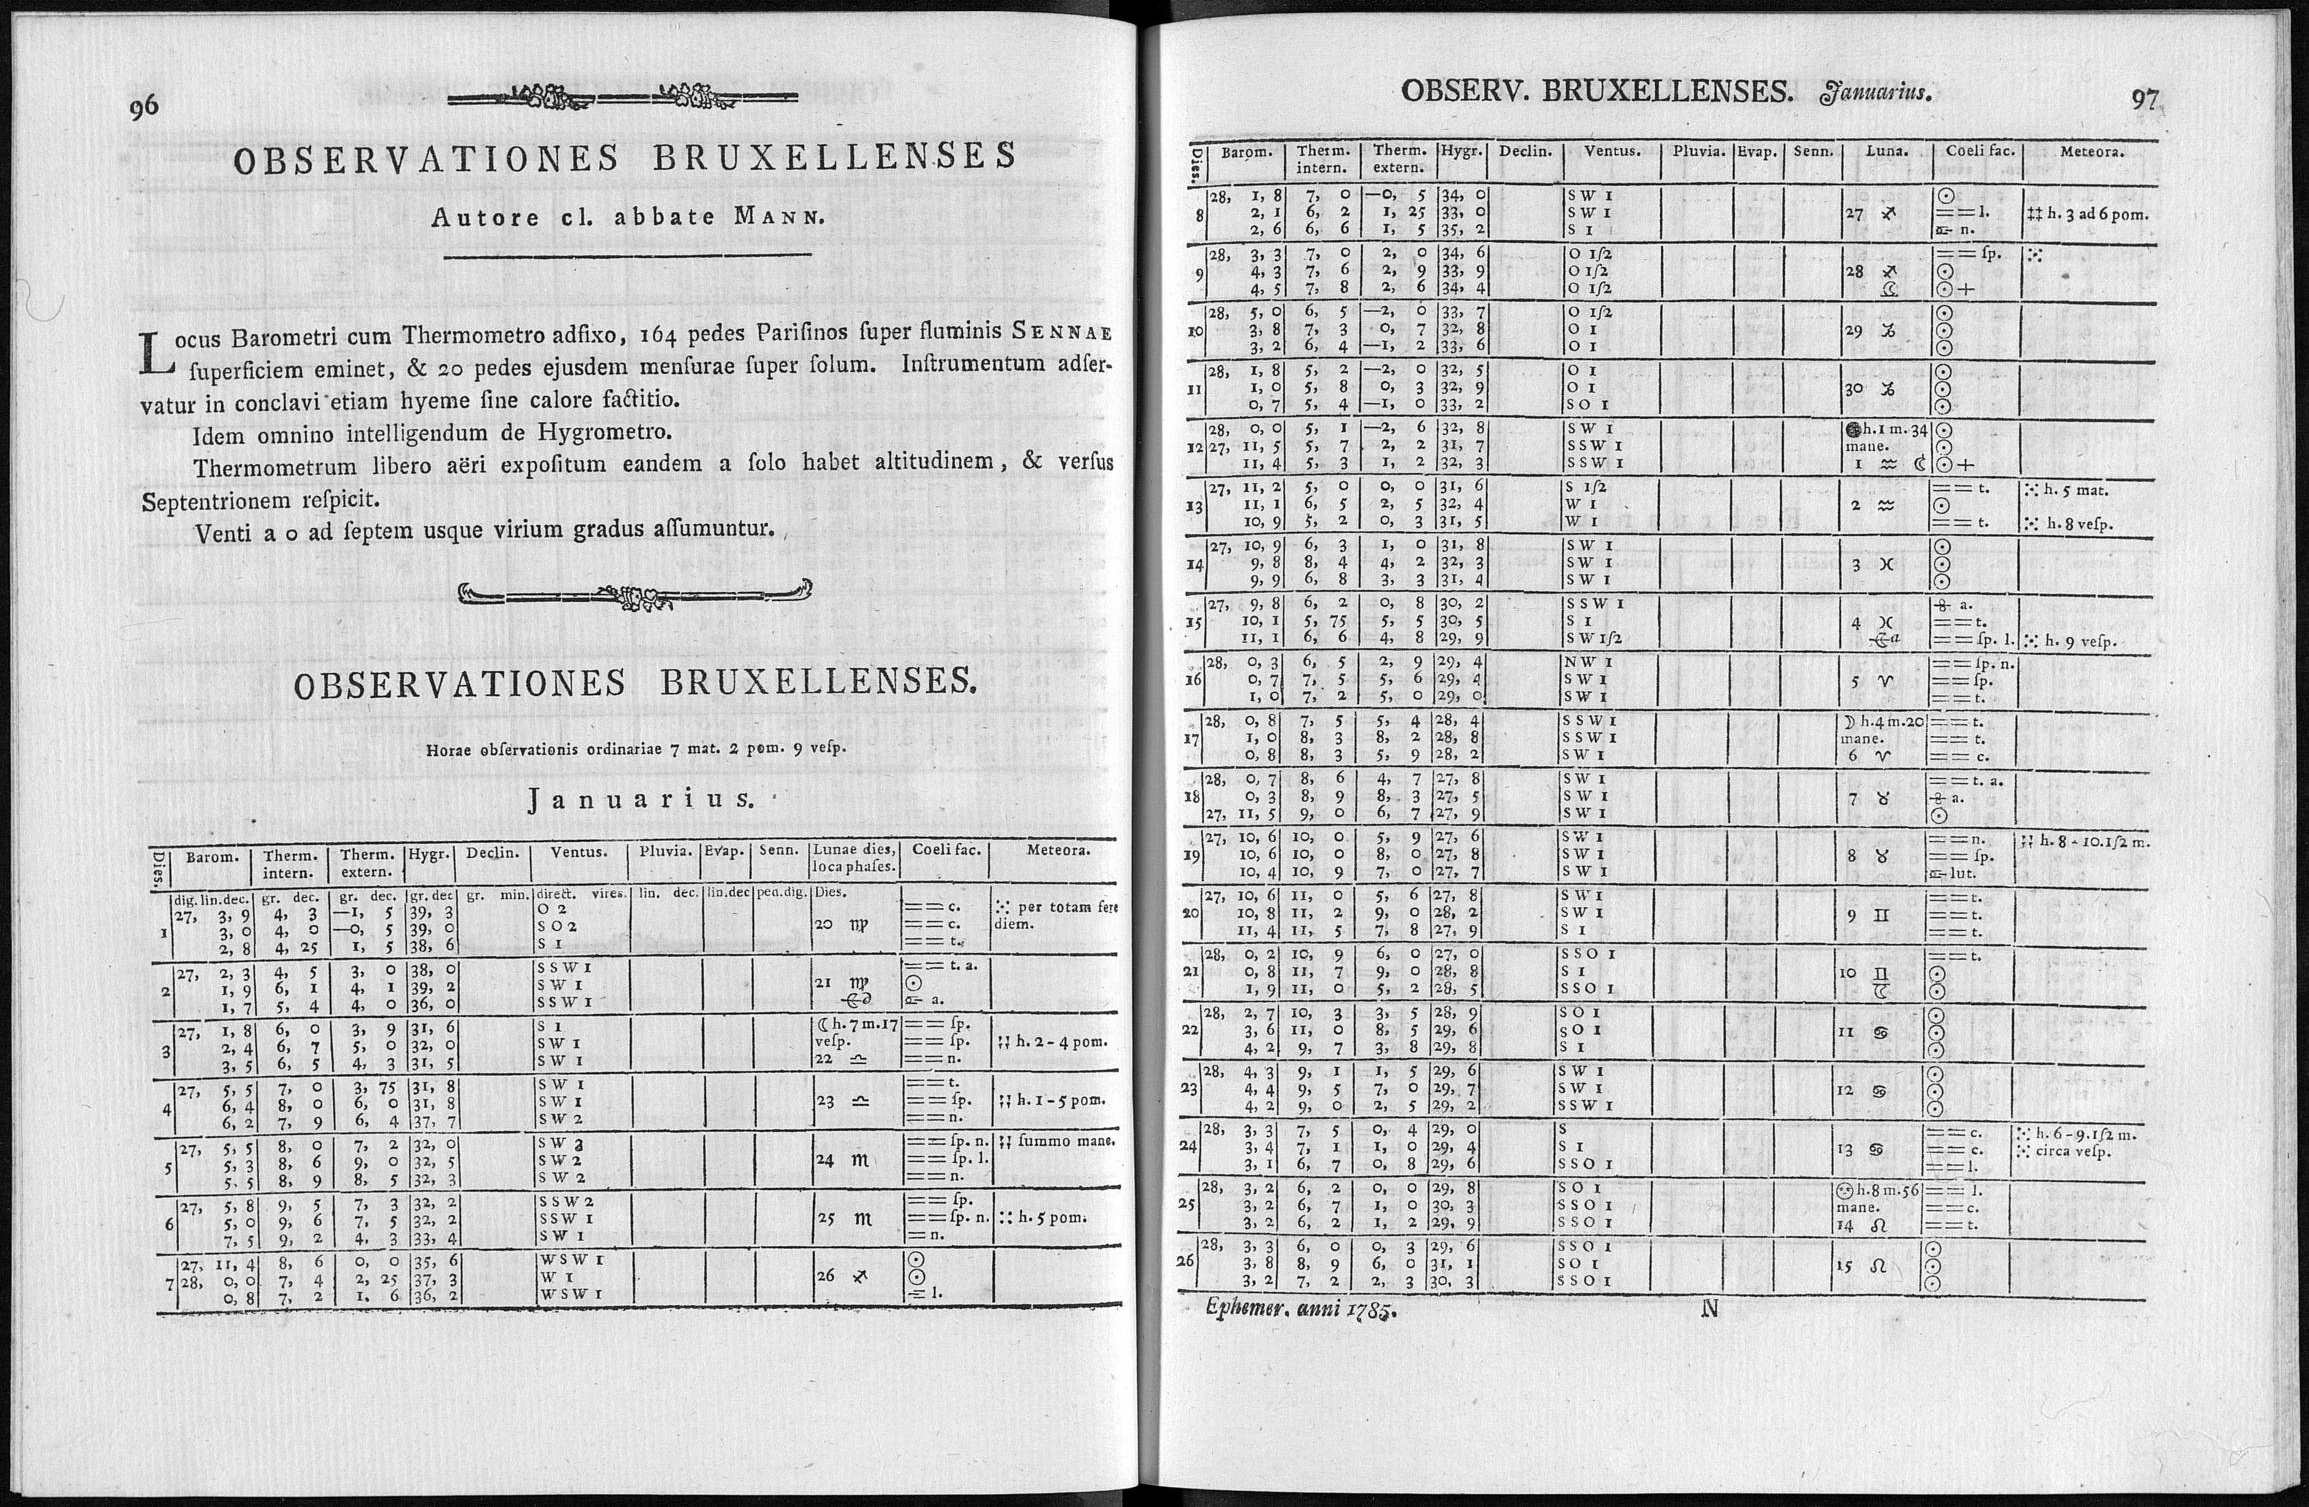 96
OBSERVATIONES BRUXELLENSES
Autore cl. abbate MANN.
Locus Barometri cum Thermometro adfixo, 164 pedes Parisinos ſuper fluminis SENNAE
ſuperficiem eminet, & 20 pedes ejusdem menſurae ſuper ſolum. Inſtrumentum adſer-
vatur in conclavi etiam hyeme ſine calore factitio.
Idem omnino intelligendum de Hygrometro.
Thermometrum libero aëri expoſitum eandem a ſolo habet altitudinem, & verſus
Septentrionem reſpicit.
Venti a 0 ad ſeptem usque virium gradus aſſumuntur.
OBSERVATIONES BRUXELLENSES.
Horae obſervationis ordinariae 7 mat. 2 pom. 9 veſp.
Januarius.
Dies. Barom. Therm. intern. Therm. extern. Hygr. Declin. Ventus. Pluvia. Evap. Senn. Lunae dies, loca phaſes. Coeli fac. Meteora.
dig. lin. dec. gr. dec. gr. dec. gr. dec gr. min. direct. vires. lin. dec. lin. dec ped. dig. Dies.
27, 3, 9 4, 3 —1, 5 39, 3 O 2 == c. ⁙ per totam fere
1 3, 0 4, 0 —0, 5 39, 0 S O 2 20 ♍ == c. diem.
2, 8 4, 25 1, 5 38, 6 S 1 == t.
27, 2, 3 4, 5 3, 0 38, 0 S S W 1 == t. a.
2 1, 9 6, 1 4, 1 39, 2 S W 1 21 ♍ ☉
1, 7 5, 4 4, 0 36, 0 S S W 1 a.
27, 1, 8 6, 0 3, 9 31, 6 S 1 ☾ h. 7 m. 17 == ſp.
3 2, 4 6, 7 5, 0 32, 0 S W 1 veſp. == ſp. h. 2 - 4 pom.
3, 5 6, 5 4, 3 31, 5 S W 1 22 ♎ == n.
27, 5, 5 7, 0 3, 75 31, 8 S W 1 == t.
4 6, 4 8, 0 6, 0 31, 8 S W 1 23 ♎ == ſp. h. 1 - 5 pom.
6, 2 7, 9 6, 4 37, 7 S W 2 == n.
27, 5, 5 8, 0 7, 2 32, 0 S W 3 == ſp. n. ſummo mane.
5 5, 3 8, 6 9, 0 32, 5 S W 2 24 ♏ == ſp. l.
5, 5 8, 9 8, 5 32, 3 S W 2 == n.
27, 5, 8 9, 5 7, 3 32, 2 S S W 2 == ſp.
6 5, 0 9, 6 7, 5 32, 2 S S W 1 25 ♏ == ſp. n. :: h. 5 pom.
7, 5 9, 2 4, 3 33, 4 S W 1 = n.
27, 11, 4 8, 6 0, 0 35, 6 W S W 1 ☉
7 28, 0, 0 7, 4 2, 25 37, 3 W 1 26 ♐ ☉
0, 8 7, 2 1, 6 36, 2 W S W 1 = l.
OBSERV. BRUXELLENSES. Januarius. 97
Dies. Barom. Therm. intern. Therm. extern. Hygr. Declin. Ventus. Pluvia. Evap. Senn. Luna. Coeli fac. Meteora.
28, 1, 8 7, 0 —0, 5 34, 0 S W 1 ☉
8 2, 1 6, 2 1, 25 33, 0 S W 1 27 ♐ == l. ‡‡ h. 3 ad 6 pom.
2, 6 6, 6 1, 5 35, 2 S 1 n.
28, 3, 3 7, 0 2, 0 34, 6 O 1ſ2 == ſp. ⁙
9 4, 3 7, 6 2, 9 33, 9 O 1ſ2 28 ♐ ☉
4, 5 7, 8 2, 6 34, 4 O 1ſ2 ☾ ☉+
28, 5, 0 6, 5 —2, 0 33, 7 O 1ſ2 ☉
10 3, 8 7, 3 0, 7 32, 8 O 1 29 ♑ ☉
3, 2 6, 4 —1, 2 33, 6 O 1 ☉
28, 1, 8 5, 2 —2, 0 32, 5 O 1 ☉
11 1, 0 5, 8 0, 3 32, 9 O 1 30 ♑ ☉
0, 7 5, 4 —1, 0 33, 2 S O 1 ☉
28, 0, 0 5, 1 —2, 6 32, 8 S W 1 ● h. 1 m. 34 ☉
12 27, 11, 5 5, 7 2, 2 31, 7 S S W 1 mane. ☉
11, 4 5, 3 1, 2 32, 3 S S W 1 1 ♒ ☾ ☉+
27, 11, 2 5, 0 0, 0 31, 6 S 1ſ2 == t. ⁙ h. 5 mat.
13 11, 1 6, 5 2, 5 32, 4 W 1 2 ♒ ☉
10, 9 5, 2 0, 3 31, 5 W 1 == t. ⁙ h. 8 veſp.
27, 10, 9 6, 3 1, 0 31, 8 S W 1 ☉
14 9, 8 8, 4 4, 2 32, 3 S W 1 3 ♓ ☉
9, 9 6, 8 3, 3 31, 4 S W 1 ☉
27, 9, 8 6, 2 0, 8 30, 2 S S W 1 a.
15 10, 1 5, 75 5, 5 30, 5 S 1 4 ♓ == t.
11, 1 6, 6 4, 8 29, 9 S W 1ſ2 == ſp. l. ⁙ h. 9 veſp.
28, 0, 3 6, 5 2, 9 29, 4 N W 1 == ſp. n.
16 0, 7 7, 5 5, 6 29, 4 S W 1 5 ♈ == ſp.
1, 0 7, 2 5, 0 29, 0 S W 1 == t.
28, 0, 8 7, 5 5, 4 28, 4 S S W 1 ☽ h. 4 m. 20 == t.
17 1, 0 8, 3 8, 2 28, 8 S S W 1 mane. == t.
0, 8 8, 3 5, 9 28, 2 S W 1 6 ♈ == c.
28, 0, 7 8, 6 4, 7 27, 8 S W 1 == t. a.
18 0, 3 8, 9 8, 3 27, 5 S W 1 7 ♉ a.
27, 11, 5 9, 0 6, 7 27, 9 S W 1 ☉
27, 10, 6 10, 0 5, 9 27, 6 S W 1 == n. h. 8 - 10. 1ſ2 m.
19 10, 6 10, 0 8, 0 27, 8 S W 1 8 ♉ == ſp.
10, 4 10, 9 7, 0 27, 7 S W 1 lut.
27, 10, 6 11, 0 5, 6 27, 8 S W 1 == t.
20 10, 8 11, 2 9, 0 28, 2 S W 1 9 ♊ == t.
11, 4 11, 5 7, 8 27, 9 S 1 == t.
28, 0, 2 10, 9 6, 0 27, 0 S S O 1 == t.
21 0, 8 11, 7 9, 0 28, 8 S 1 10 ♊ ☉
1, 9 11, 0 5, 2 28, 5 S S O 1 ☾ ☉
28, 2, 7 10, 3 3, 5 28, 9 S O 1 ☉
22 3, 6 11, 0 8, 5 29, 6 S O 1 11 ♋ ☉
4, 2 9, 7 3, 8 29, 8 S 1 ☉
28, 4, 3 9, 1 1, 5 29, 6 S W 1 ☉
23 4, 4 9, 5 7, 0 29, 7 S W 1 12 ♋ ☉
4, 2 9, 0 2, 5 29, 2 S S W 1 ☉
28, 3, 3 7, 5 0, 4 29, 0 S == c. ⁙ h. 6 - 9. 1ſ2 m.
24 3, 4 7, 1 1, 0 29, 4 S 1 13 ♋ == c. ⁙ circa veſp.
3, 1 6, 7 0, 8 29, 6 S S O 1 == l.
28, 3, 2 6, 2 0, 0 29, 8 S O 1 h. 8 m. 56 == l.
25 3, 2 6, 7 1, 0 30, 3 S S O 1 mane. == c.
3, 2 6, 2 1, 2 29, 9 S S O 1 14 ♌ == t.
28, 3, 3 6, 0 0, 3 29, 6 S S O 1 ☉
26 3, 8 8, 9 6, 0 31, 1 S O 1 15 ♌ ☉
3, 2 7, 2 2, 3 30, 3 S S O 1 ☉
Ephemer. anni 1785. N